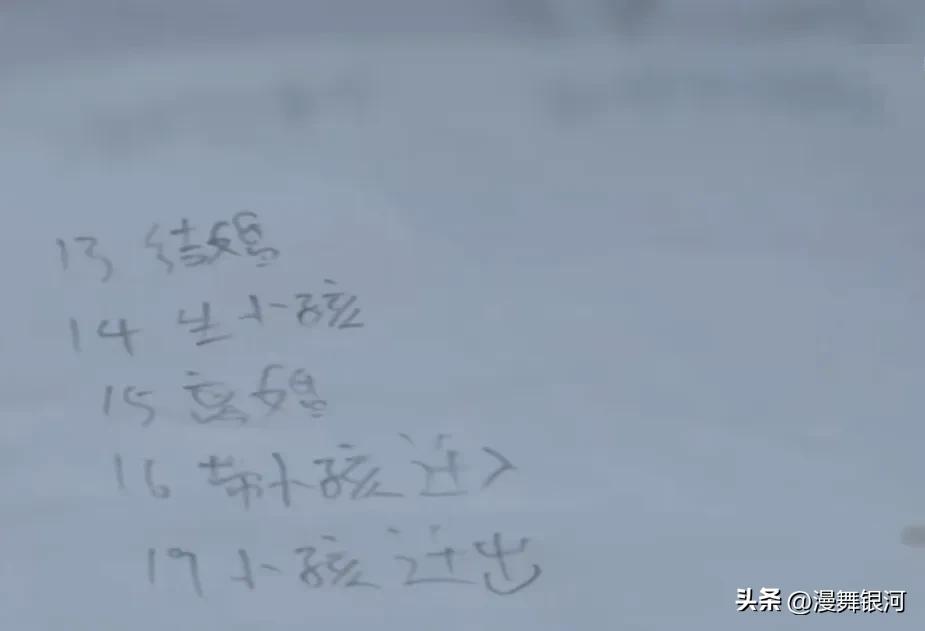 13 结婚
14 生小孩
15 离婚
16 带小孩迁入
19 小孩迁出
头条 @漫舞银河